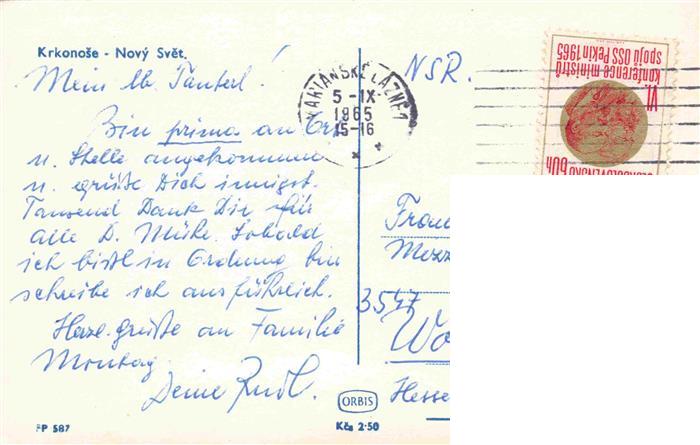 Krkonoše - Nový Svět.
Mein lb. Tanterl!
Bin prima an Ort
u. Stelle angekommen
u. grüße Dich innigst.
Tausend Dank Dir für
alle D. Mühe. Sobald
ich bissl in Ordnung bin
schreibe ich ausführlich.
Herzl. grüße an Familie
Montag.
Deine
FP 587
ORBIS
Kčs 2·50
MARIÁNSKÉ LÁZNĚ 1
5 -IX
1965
15-16
NSR.
VI.
konference ministrů
spojů OSS Pekin 1965
60h
Frau
Mozz
3547
Wo
Hesse